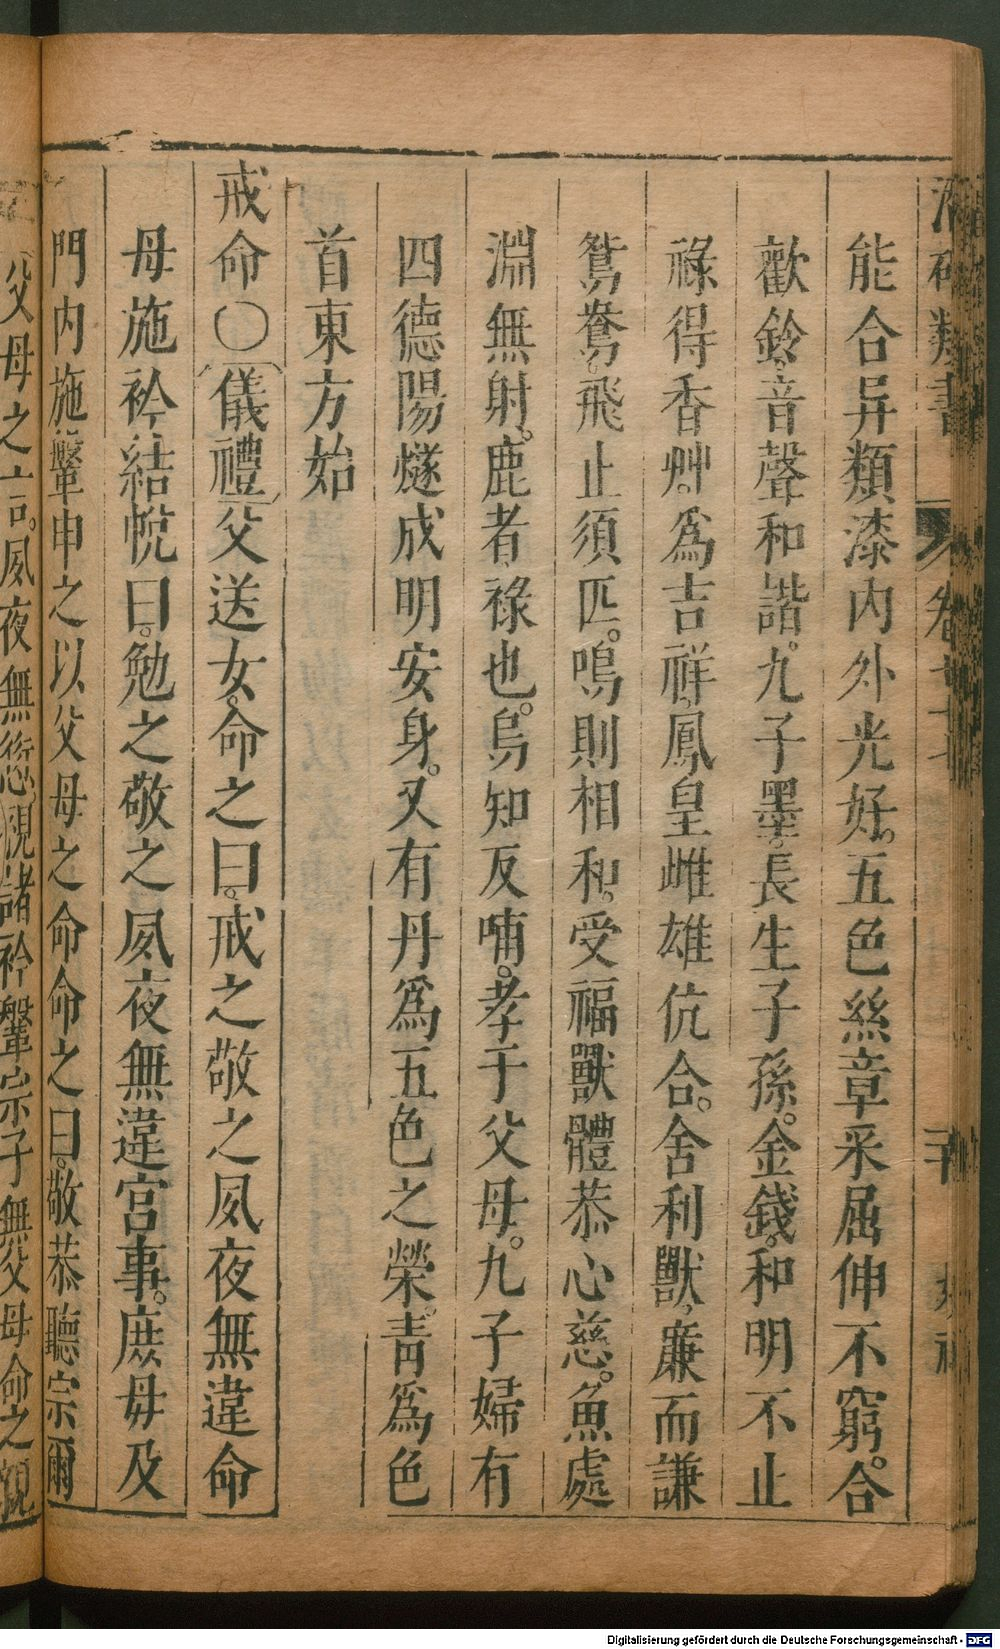 類書
能合异類漆内外光好。五色絲章采屈伸不窮。合
歡鈴。音聲和諧。九子墨。長生子孫。金錢。和明不止
祿得香艸。爲吉祥。鳳皇雌雄伉合。舍利獸。廉而謙
鴛鴦。飛止須匹。鳴則相和。受福獸體恭心慈。魚處
淵無射。鹿者祿也。烏知反哺。孝于父母。九子婦有
四德陽燧成明安身。又有丹爲五色之榮。青爲色
首東方始
戒命〇儀禮父送女。命之曰。戒之敬之夙夜無違命
母施衿結帨曰。勉之敬之夙夜無違宮事。庶母及
門内施鞶申之以父母之命命之曰。敬恭聽宗爾
父母之言。夙夜無愆視諸衿鞶宗子無父母命之親
Digitalisierung gefördert durch die Deutsche Forschungsgemeinschaft - DFG